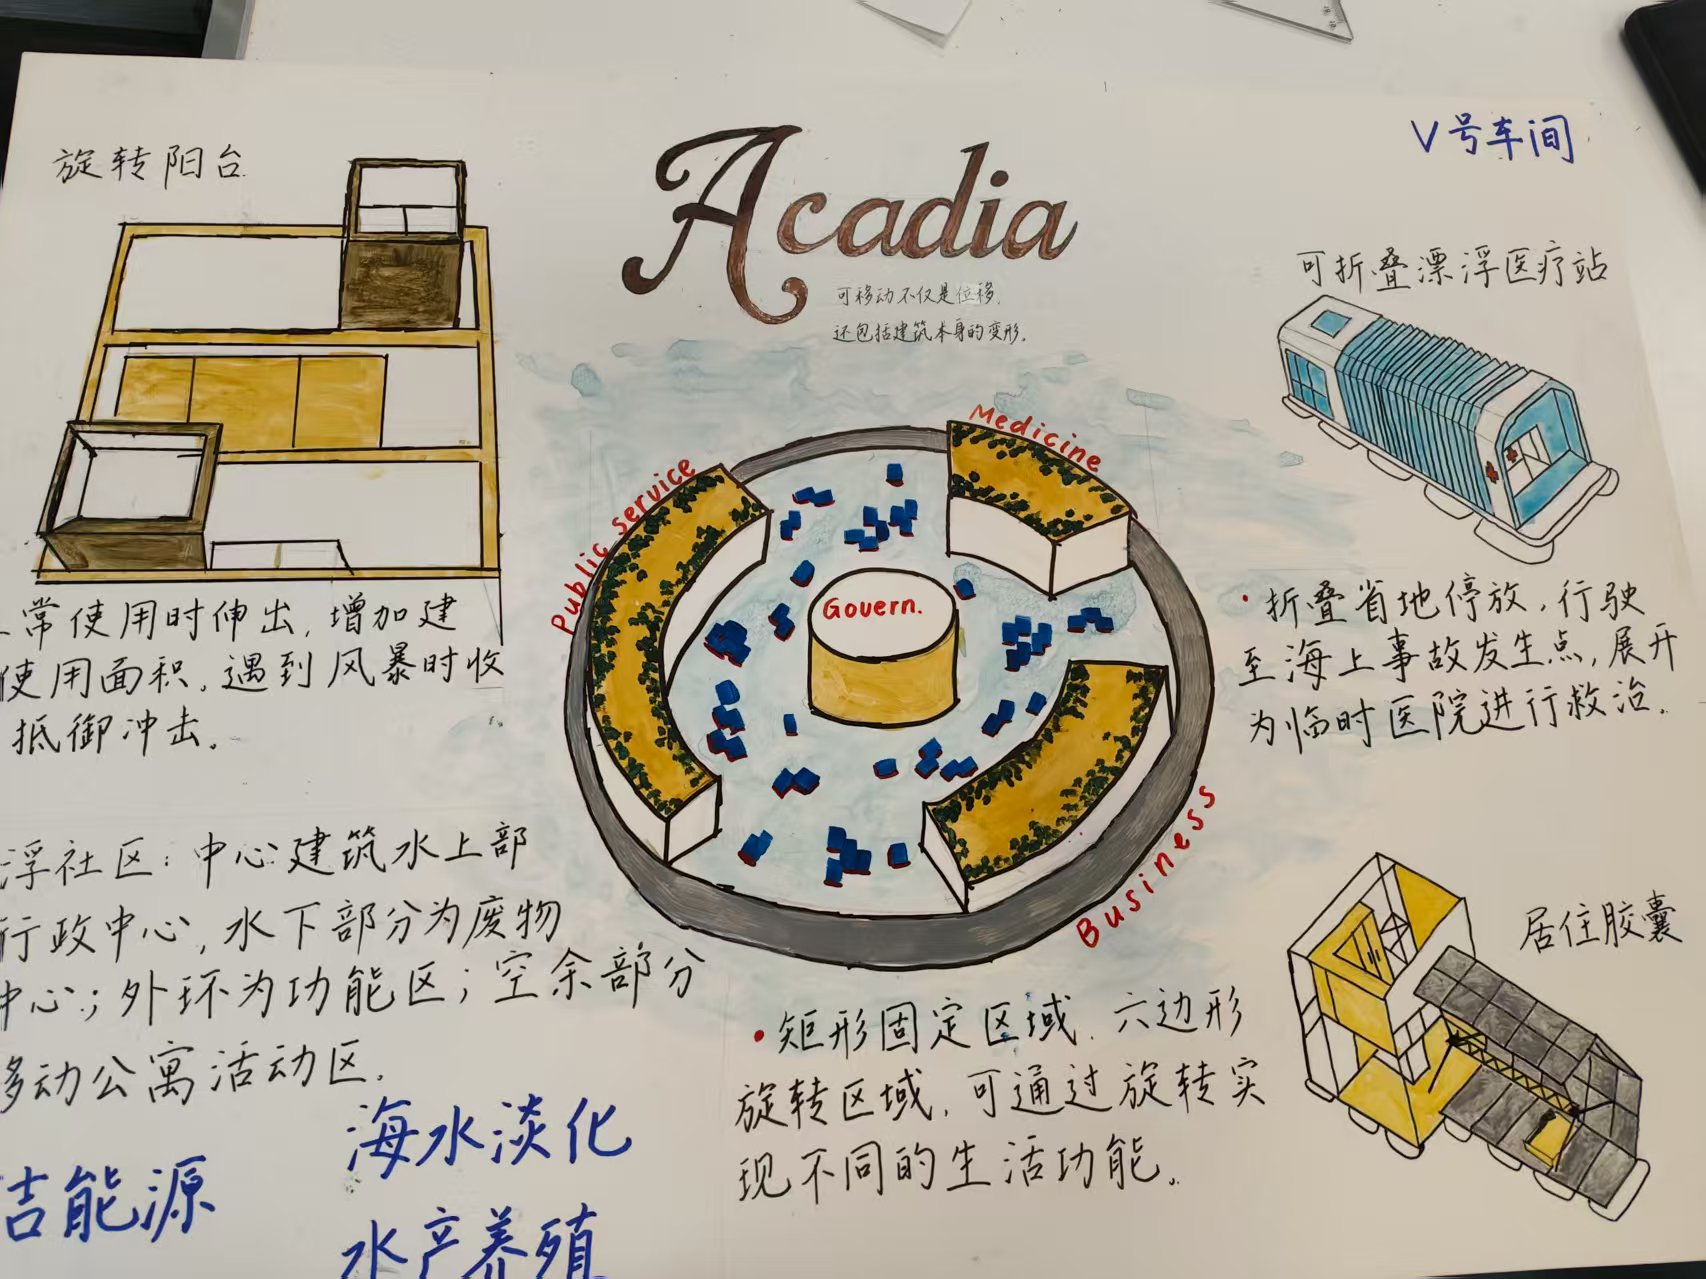 Acadia
可移动不仅是位移,
还包括建筑本身的变形。
V号车间
旋转阳台
常使用时伸出,增加建
使用面积,遇到风暴时收
抵御冲击。
可折叠漂浮医疗站
·折叠省地停放,行驶
至海上事故发生点,展开
为临时医院进行救治。
Public service
Medicine
Govern.
Business
浮社区:中心建筑水上部
行政中心,水下部分为废物
中心;外环为功能区;空余部分
移动公寓活动区.
居住胶囊
·矩形固定区域,六边形
旋转区域,可通过旋转实
现不同的生活功能。
洁能源
海水淡化
水产养殖